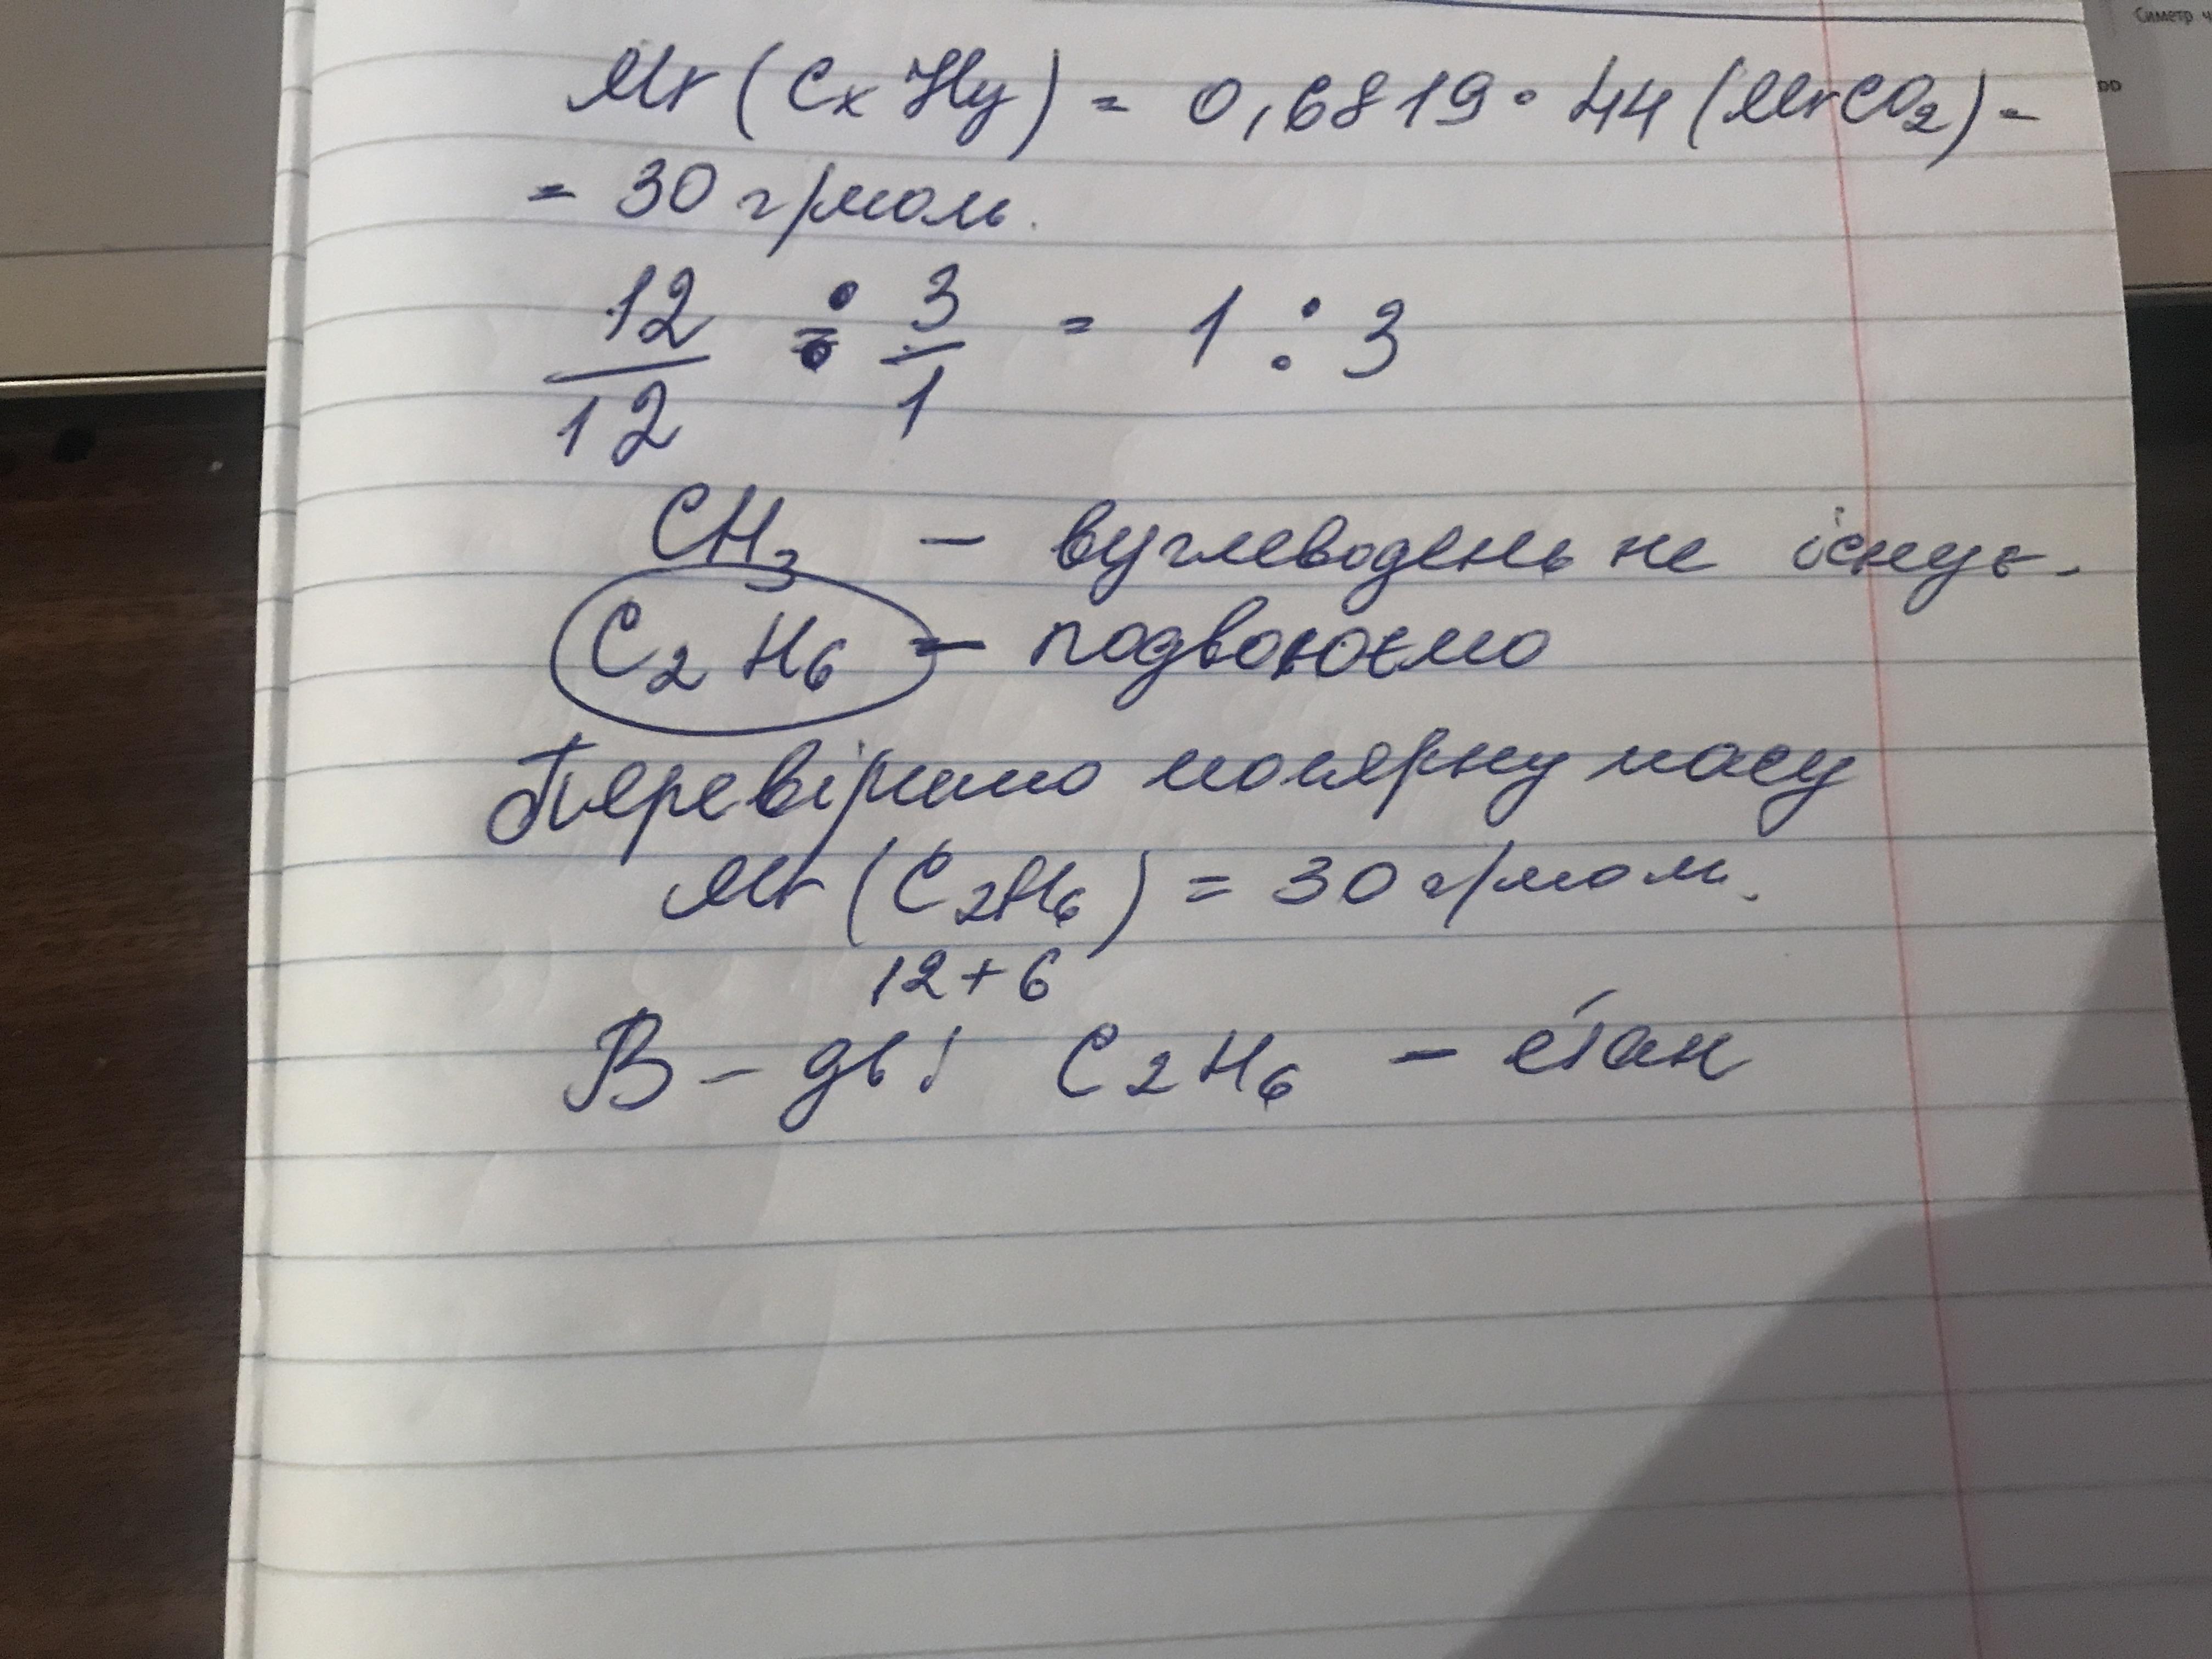 Симетр ч
Mr (CxHy) = 0,6819 · 44 (MrCO₂) =
= 30 г/моль.
12/12 : 3/1 = 1 : 3
CH₃ – вуглеводень не існує.
C₂H₆ – подвоюємо
Перевіримо молярну масу
Mr (C₂H₆) = 30 г/моль.
12+6
В – дь: C₂H₆ – етан